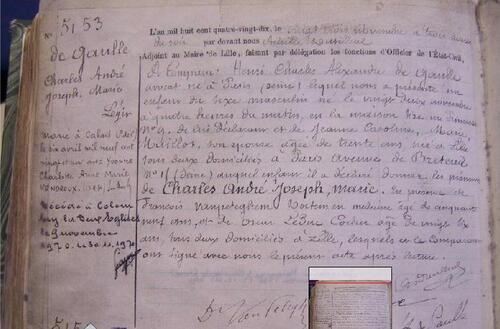 N° 5153
de Gaulle
Charles André
Joseph, Marie
Légit
marié à Calais
le six avril mil neuf cent
vingt et un avec Yvonne
Charlotte Anne Marie
Vendroux
Décédé à Colom
bey les Deux Eglises
le 9 novembre
1970
L'an mil huit cent quatre-vingt-dix, le vingt trois novembre à trois heures
du soir par devant nous
Adjoint au Maire de Lille, faisant par délégation les fonctions d'Officier de l'État-Civil,
Henri Charles Alexandre de Gaulle
né à Paris (Seine) lequel nous a présenté un
enfant du sexe masculin né le vingt deux novembre
à quatre heures du matin, en la maison
N° 9, de lui déclarant et de Jeanne Caroline, Marie,
Maillot, son épouse âgée de trente ans née à Lille
tous deux domiciliés à Paris Avenue de Breteuil
auquel enfant il a déclaré donner les prénoms
de Charles André Joseph, Marie. En présence de
François docteur en médecine âgé de cinquante
neuf ans, et de cocher âgé de vingt six
ans, tous deux domiciliés à Lille, lesquels et le comparant
ont signé avec nous le présent acte après lecture.